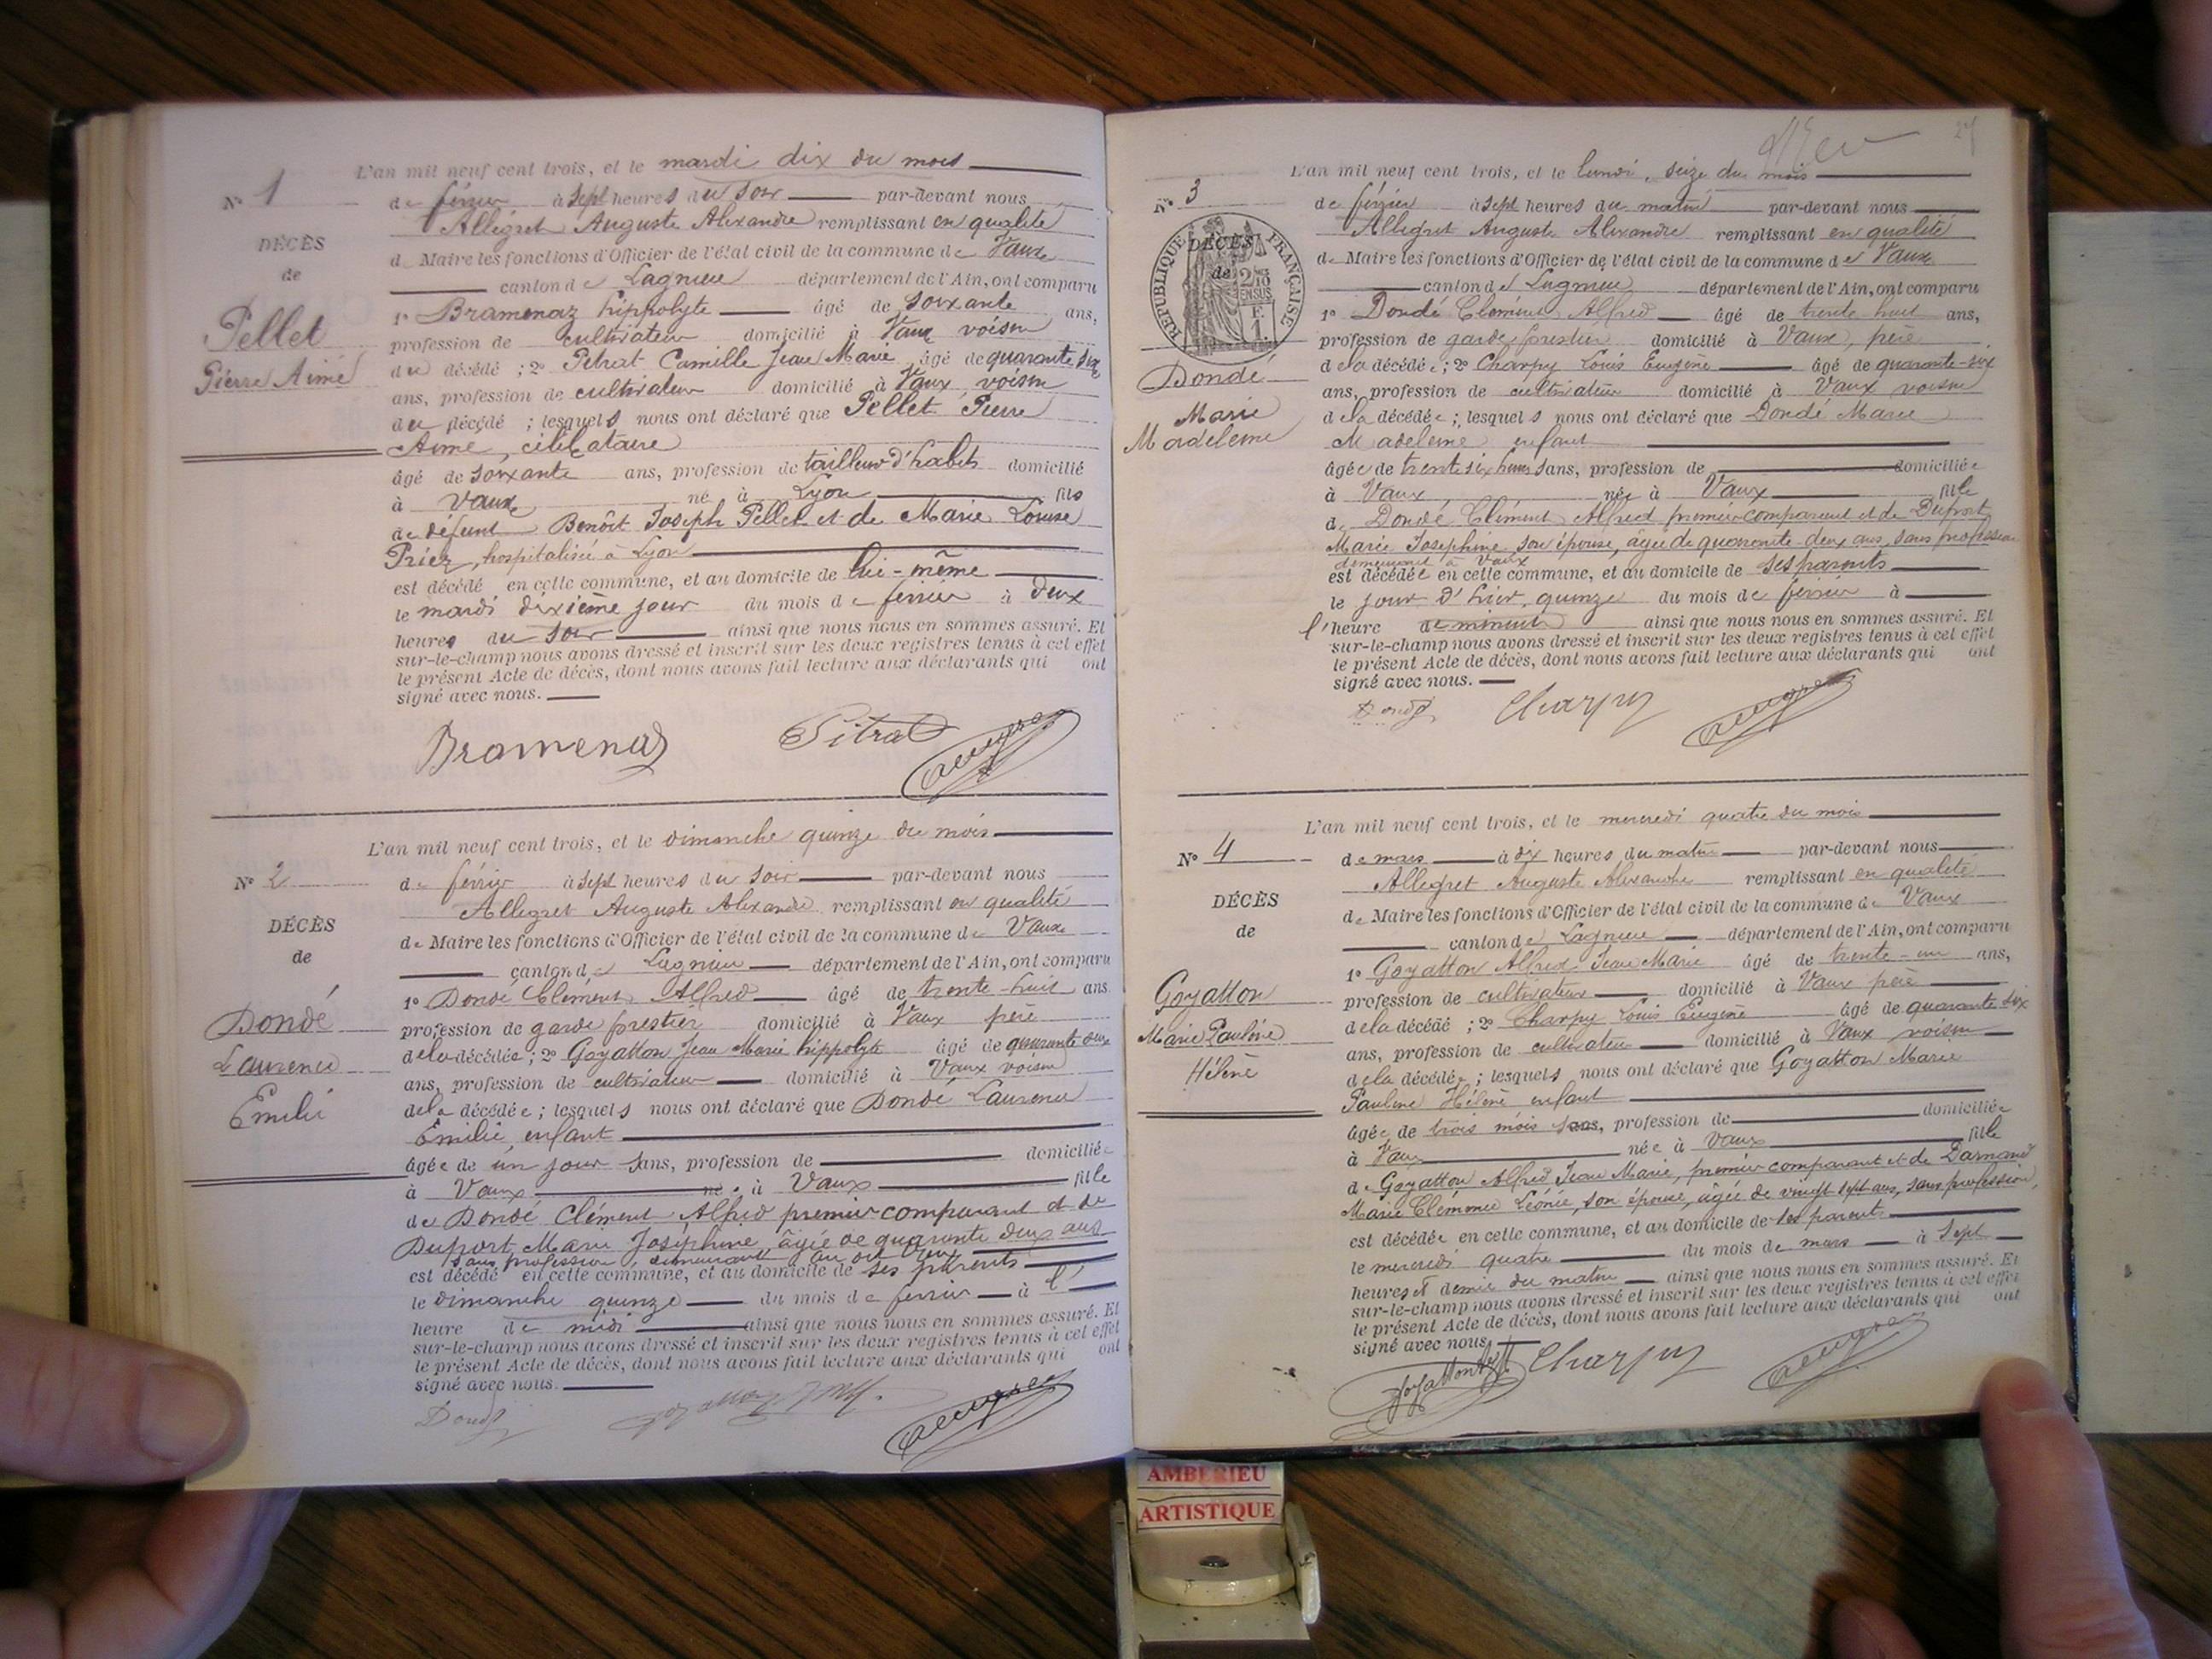 L'an mil neuf cent trois, et le mardi dix du mois
N° 1
de février à sept heures du soir par-devant nous
Allegret Auguste Alexandre remplissant en qualité
DÉCÈS
de Maire les fonctions d'Officier de l'état civil de la commune de Vaux
de
canton de Lagnieu département de l'Ain, ont comparu
Pellet
Pierre Aimé
1° Bramenaz hippolyte âgé de soixante ans,
profession de cultivateur domicilié à Vaux voisin
du décédé ; 2° Petrat Camille Jean Marie âgé de quarante six
ans, profession de cultivateur domicilié à Vaux voisin
du décédé ; lesquels nous ont déclaré que Pellet Pierre
Aimé, célibataire
âgé de soixante ans, profession de tailleur d'habits domicilié
à Vaux né à Lyon fils
de défunt Benôit Joseph Pellet et de Marie Louise
Priez, hospitalisée à Lyon
est décédé en cette commune, et au domicile de lui-même
le mardi dixième jour du mois de février à deux
heures du soir ainsi que nous nous en sommes assuré. Et
sur-le-champ nous avons dressé et inscrit sur les deux registres tenus à cet effet
le présent Acte de décès, dont nous avons fait lecture aux déclarants qui ont
signé avec nous.
Bramenaz Pitrat
L'an mil neuf cent trois, et le dimanche quinze du mois
N° 2
de février à sept heures du soir par-devant nous
Allegret Auguste Alexandre remplissant en qualité
DÉCÈS
de Maire les fonctions d'Officier de l'état civil de la commune de Vaux
de
canton de Lagnieu département de l'Ain, ont comparu
Dondé
Laurence
Emilie
1° Dondé Clément Alfred âgé de trente-huit ans
profession de garde forestier domicilié à Vaux père
de la décédée ; 2° Goyatton Jean Marie hippolyte âgé de quarante deux
ans, profession de cultivateur domicilié à Vaux voisin
de la décédée ; lesquels nous ont déclaré que Dondé Laurence
Emilie, enfant
âgée de un jour sans, profession de domiciliée
à Vaux né à Vaux fille
de Dondé Clément Alfred premier comparant et de
Duport Marie Joséphine âgée de quarante deux ans
sans profession, demeurant au dit Vaux
est décédé en cette commune, et au domicile de ses parents
le dimanche quinze du mois de février à l'
heure de midi ainsi que nous nous en sommes assuré. Et
sur-le-champ nous avons dressé et inscrit sur les deux registres tenus à cet effet
le présent Acte de décès, dont nous avons fait lecture aux déclarants qui ont
signé avec nous.
Dondé
27
L'an mil neuf cent trois, et le lundi, seize du mois
N° 3
de février à sept heures du matin par-devant nous
Allegret Auguste Alexandre remplissant en qualité
RÉPUBLIQUE FRANÇAISE
DÉCÈS
de
de Maire les fonctions d'Officier de l'état civil de la commune de Vaux
canton de Lagnieu département de l'Ain, ont comparu
Dondé
Marie
Madeleine
1° Dondé Clément Alfred âgé de trente huit ans,
profession de garde forestier domicilié à Vaux, père
de la décédée ; 2° Charpy Louis Eugène âgé de quarante-six
ans, profession de cultivateur domicilié à Vaux voisin
de la décédée ; lesquels nous ont déclaré que Dondé Marie
Madeleine enfant
âgée de trente six heures sans, profession de domiciliée
à Vaux née à Vaux fille
de Dondé Clément Alfred premier comparant et de Duport
Marie Josephine, son épouse, âgée de quarante-deux ans, sans profession
demeurant à Vaux
est décédée en cette commune, et au domicile de ses parents
le jour d'hier, quinze du mois de février à
l'heure de minuit ainsi que nous nous en sommes assuré. Et
sur-le-champ nous avons dressé et inscrit sur les deux registres tenus à cet effet
le présent Acte de décès, dont nous avons fait lecture aux déclarants qui ont
signé avec nous.
Dondé Charpy
L'an mil neuf cent trois, et le mercredi quatre du mois
N° 4
de mars à dix heures du matin par-devant nous
Allegret Auguste Alexandre remplissant en qualité
DÉCÈS
de Maire les fonctions d'Officier de l'état civil de la commune de Vaux
de
canton de Lagnieu département de l'Ain, ont comparu
Goyatton
Marie Pauline
Hélène
1° Goyatton Alfred Jean Marie âgé de trente-un ans,
profession de cultivateur domicilié à Vaux père
de la décédé ; 2° Charpy Louis Eugène âgé de quarante six
ans, profession de cultivateur domicilié à Vaux voisin
de la décédée ; lesquels nous ont déclaré que Goyatton Marie
Pauline Hélène enfant
âgée de trois mois sans, profession de domiciliée
à Vaux née à Vaux fille
de Goyatton Alfred Jean Marie, premier comparant et de Darnand
Marie Clémence Léonie, son épouse, âgée de vingt sept ans, sans profession,
est décédée en cette commune, et au domicile de ses parents
le mercredi quatre du mois de mars à sept
heures et demie du matin ainsi que nous nous en sommes assuré. Et
sur-le-champ nous avons dressé et inscrit sur les deux registres tenus à cet effet
le présent Acte de décès, dont nous avons fait lecture aux déclarants qui ont
signé avec nous.
Charpy
AMBERIEU
ARTISTIQUE